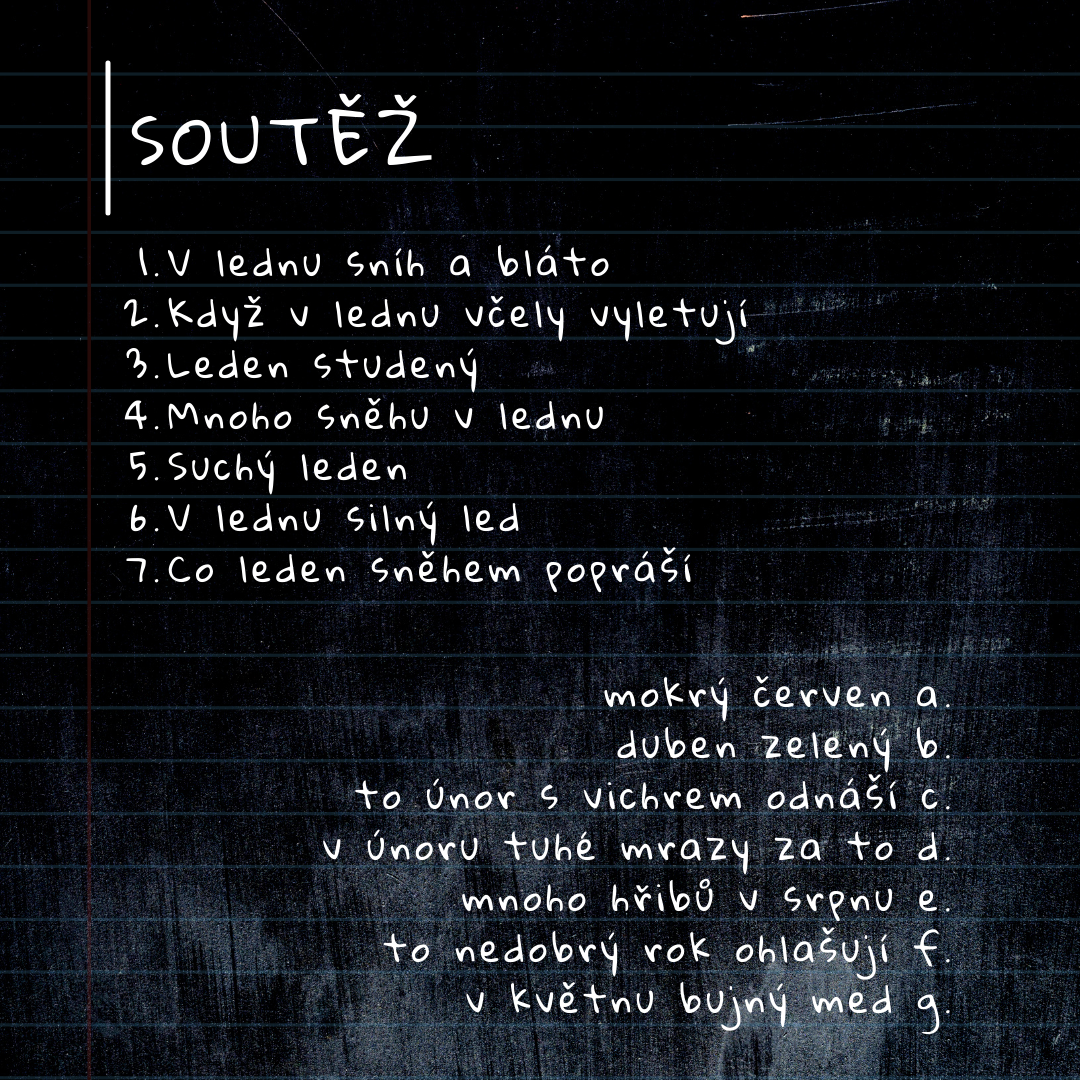 SOUTĚŽ
1. V lednu sníh a bláto
2. Když v lednu včely vyletují
3. Leden studený
4. Mnoho sněhu v lednu
5. Suchý leden
6. V lednu silný led
7. Co leden sněhem popráší
mokrý červen a.
duben zelený b.
to únor s vichrem odnáší c.
v únoru tuhé mrazy za to d.
mnoho hřibů v srpnu e.
to nedobrý rok ohlašují f.
v květnu bujný med g.